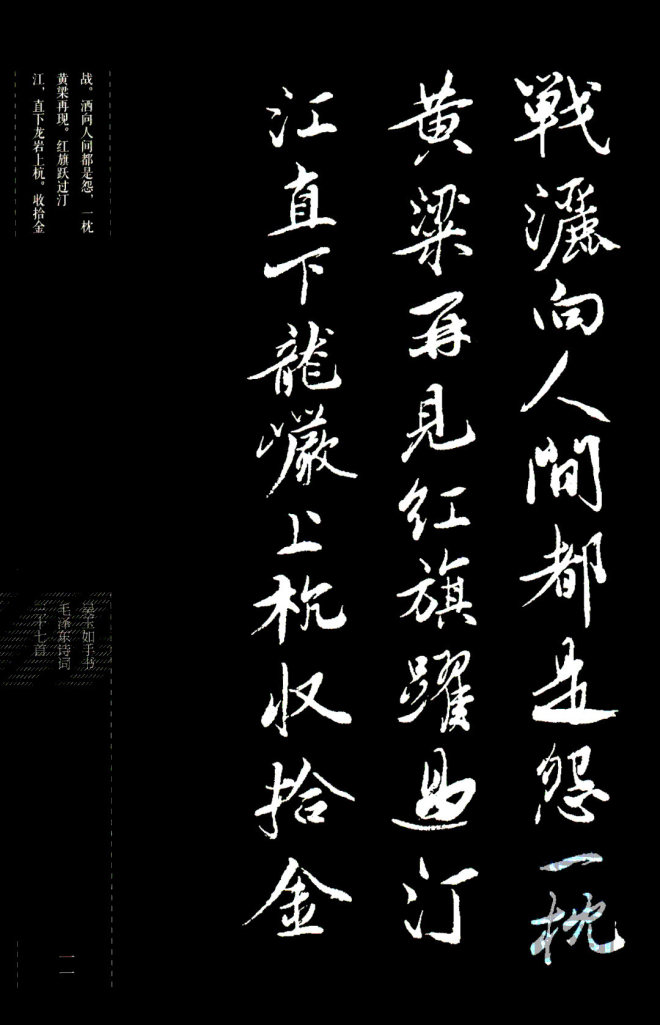 戰灑向人間都是怨一枕
黄粱再見紅旗躍過汀
江直下龍巖上杭收拾金
战。洒向人间都是怨，一枕
黄梁再现。红旗跃过汀
江，直下龙岩上杭。收拾金
吴玉如手书
毛泽东诗词
三十七篇
一一